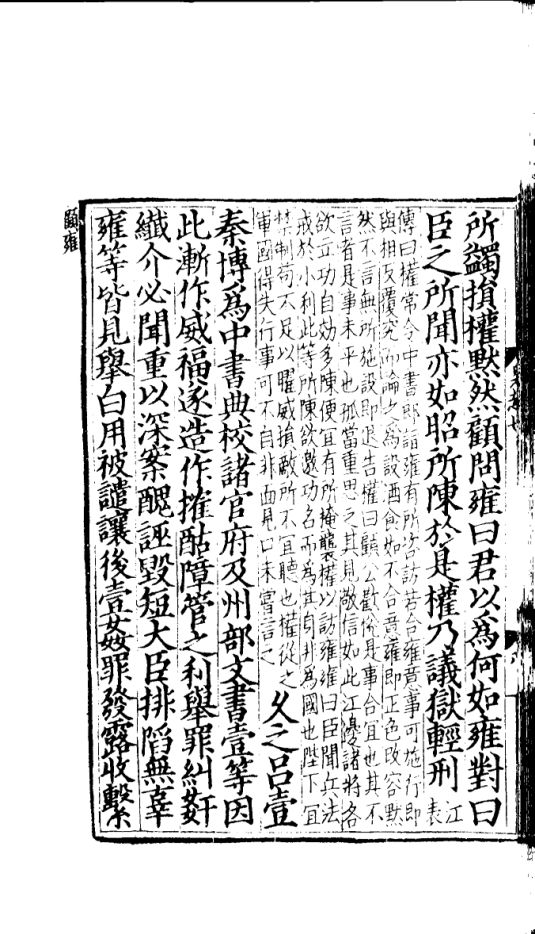 所蠲損權默然顧問雍曰君以為何如雍對曰
臣之所聞亦如昭所陳於是權乃議獄輕刑江表
傳曰權常令中書郎詣雍有所咨訪若合雍意事可施行即
與相反覆究而論之為設酒食如不合意雍即正色改容默
然不言無所施設即退告權曰顧公歡恱是事合宜也其不
言者是事未平也孤當重思之其見敬信如此江邊諸將各
欲立功自効多陳便宜有所掩襲權以訪雍雍曰臣聞兵法
戒於小利此等所陳欲邀功名而為其身非為國也陛下宜
禁制苟不足以曜威損敵所不宜聽也權從之
軍國得失行事可不自非面見口未嘗言之
久之呂壹
秦博為中書典校諸官府及州部文書壹等因
此漸作威福遂造作搉酤障管之利舉罪糾奸
纎介必聞重以深案醜誣毀短大臣排陷無辜
雍等皆見舉白用被譴讓後壹姦罪發露收繫
顧雍